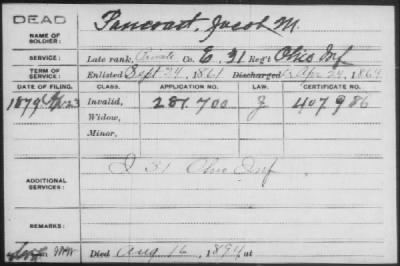 DEAD
NAME OF SOLDIER: Pancoast, Jacob M.
SERVICE: Late rank, Private Co. E, 31 Reg't Ohio Inf
TERM OF SERVICE: Enlisted Sept 24, 1861 Discharged Apr 24, 1864
DATE OF FILING. CLASS. APPLICATION NO. LAW. CERTIFICATE NO.
1879 23 Invalid, 287.700 407986
Widow,
Minor,
ADDITIONAL SERVICES: I 31 Ohio Inf
REMARKS:
Died Aug 16, 1894 at